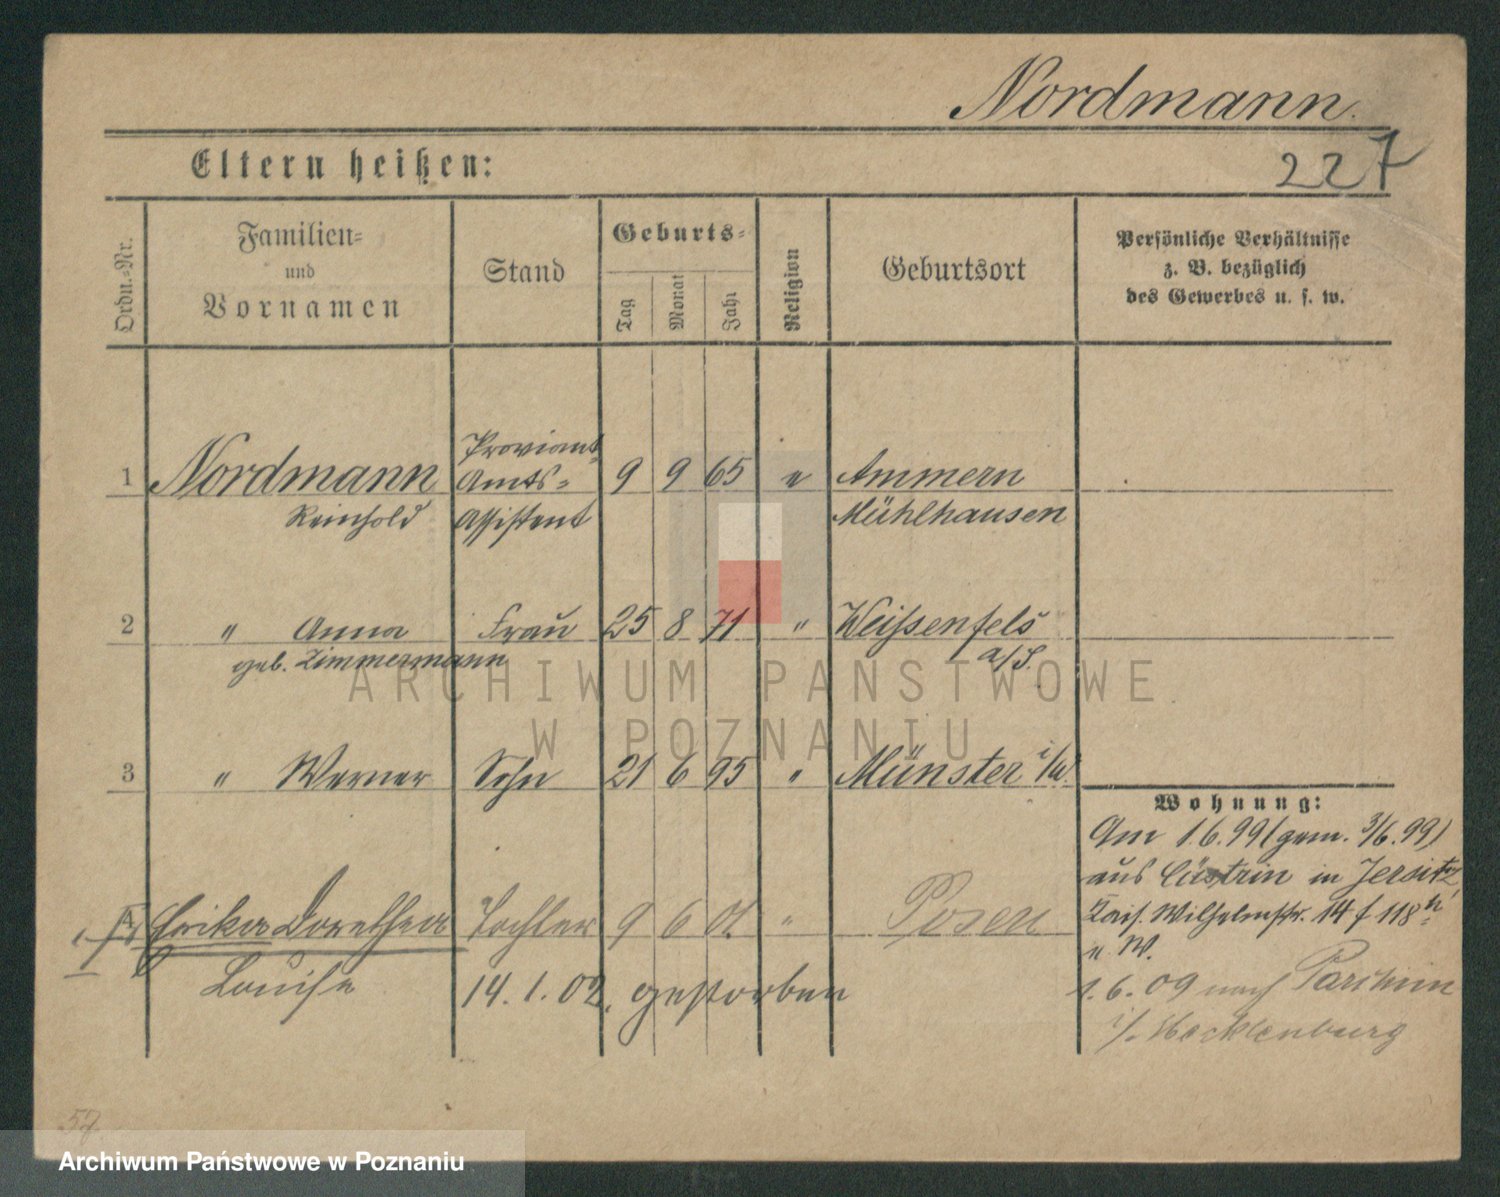 Nordmann.
Eltern heißen:
227
Ordn.-Nr.
Familien-
und
Vornamen
Stand
Geburts-
Tag
Monat
Jahr
Religion
Geburtsort
Persönliche Verhältnisse
z. B. bezüglich
des Gewerbes u. s. w.
1 Nordmann Proviant- Amts- 9 9 65 e Ammern
Reinhold Assistent Mühlhausen
2 " Anna Frau 25 8 71 " Weißenfels
geb. Zimmermann a/S.
ARCHIWUM PAŃSTWOWE
W POZNANIU
3 " Werner Sohn 21 6 95 " Münster i/W.
Wohnung:
Am 1.6.99 (gem. 3/6.99)
aus Cüstrin in Jersitz,
Kais. Wilhelmstr. 14 f 118
1.6.09 nach Parchim
i/. Mecklenburg
Erika Dorothea Tochter 9 6 01. " Posen
Louise 14.1.02. gestorben
57.
Archiwum Państwowe w Poznaniu